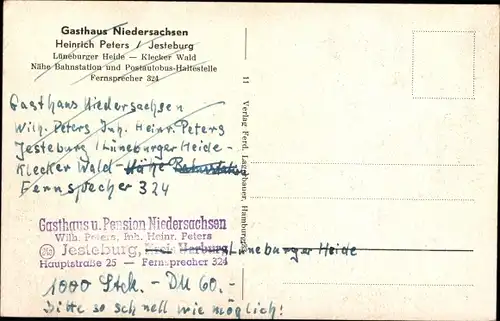 Gasthaus Niedersachsen
Heinrich Peters / Jesteburg
Lüneburger Heide — Klecker Wald
Nähe Bahnstation und Postautobus-Haltestelle
Fernsprecher 324
Gasthaus Niedersachsen
Wilh. Peters Inh. Heinr. Peters
Jesteburg / Lüneburger Heide -
Klecker Wald - Nähe Bahnstation
Fernspecher 324
Gasthaus u. Pension Niedersachsen
Wilh. Peters, Inh. Heinr. Peters
Jesteburg, Kreis Harburg Lüneburger Heide
Hauptstraße 25 — Fernsprecher 324
1000 Stck. - DM 60.-
Bitte so schnell wie möglich!
11 Verlag Ferd. Lagerbauer, Hamburg